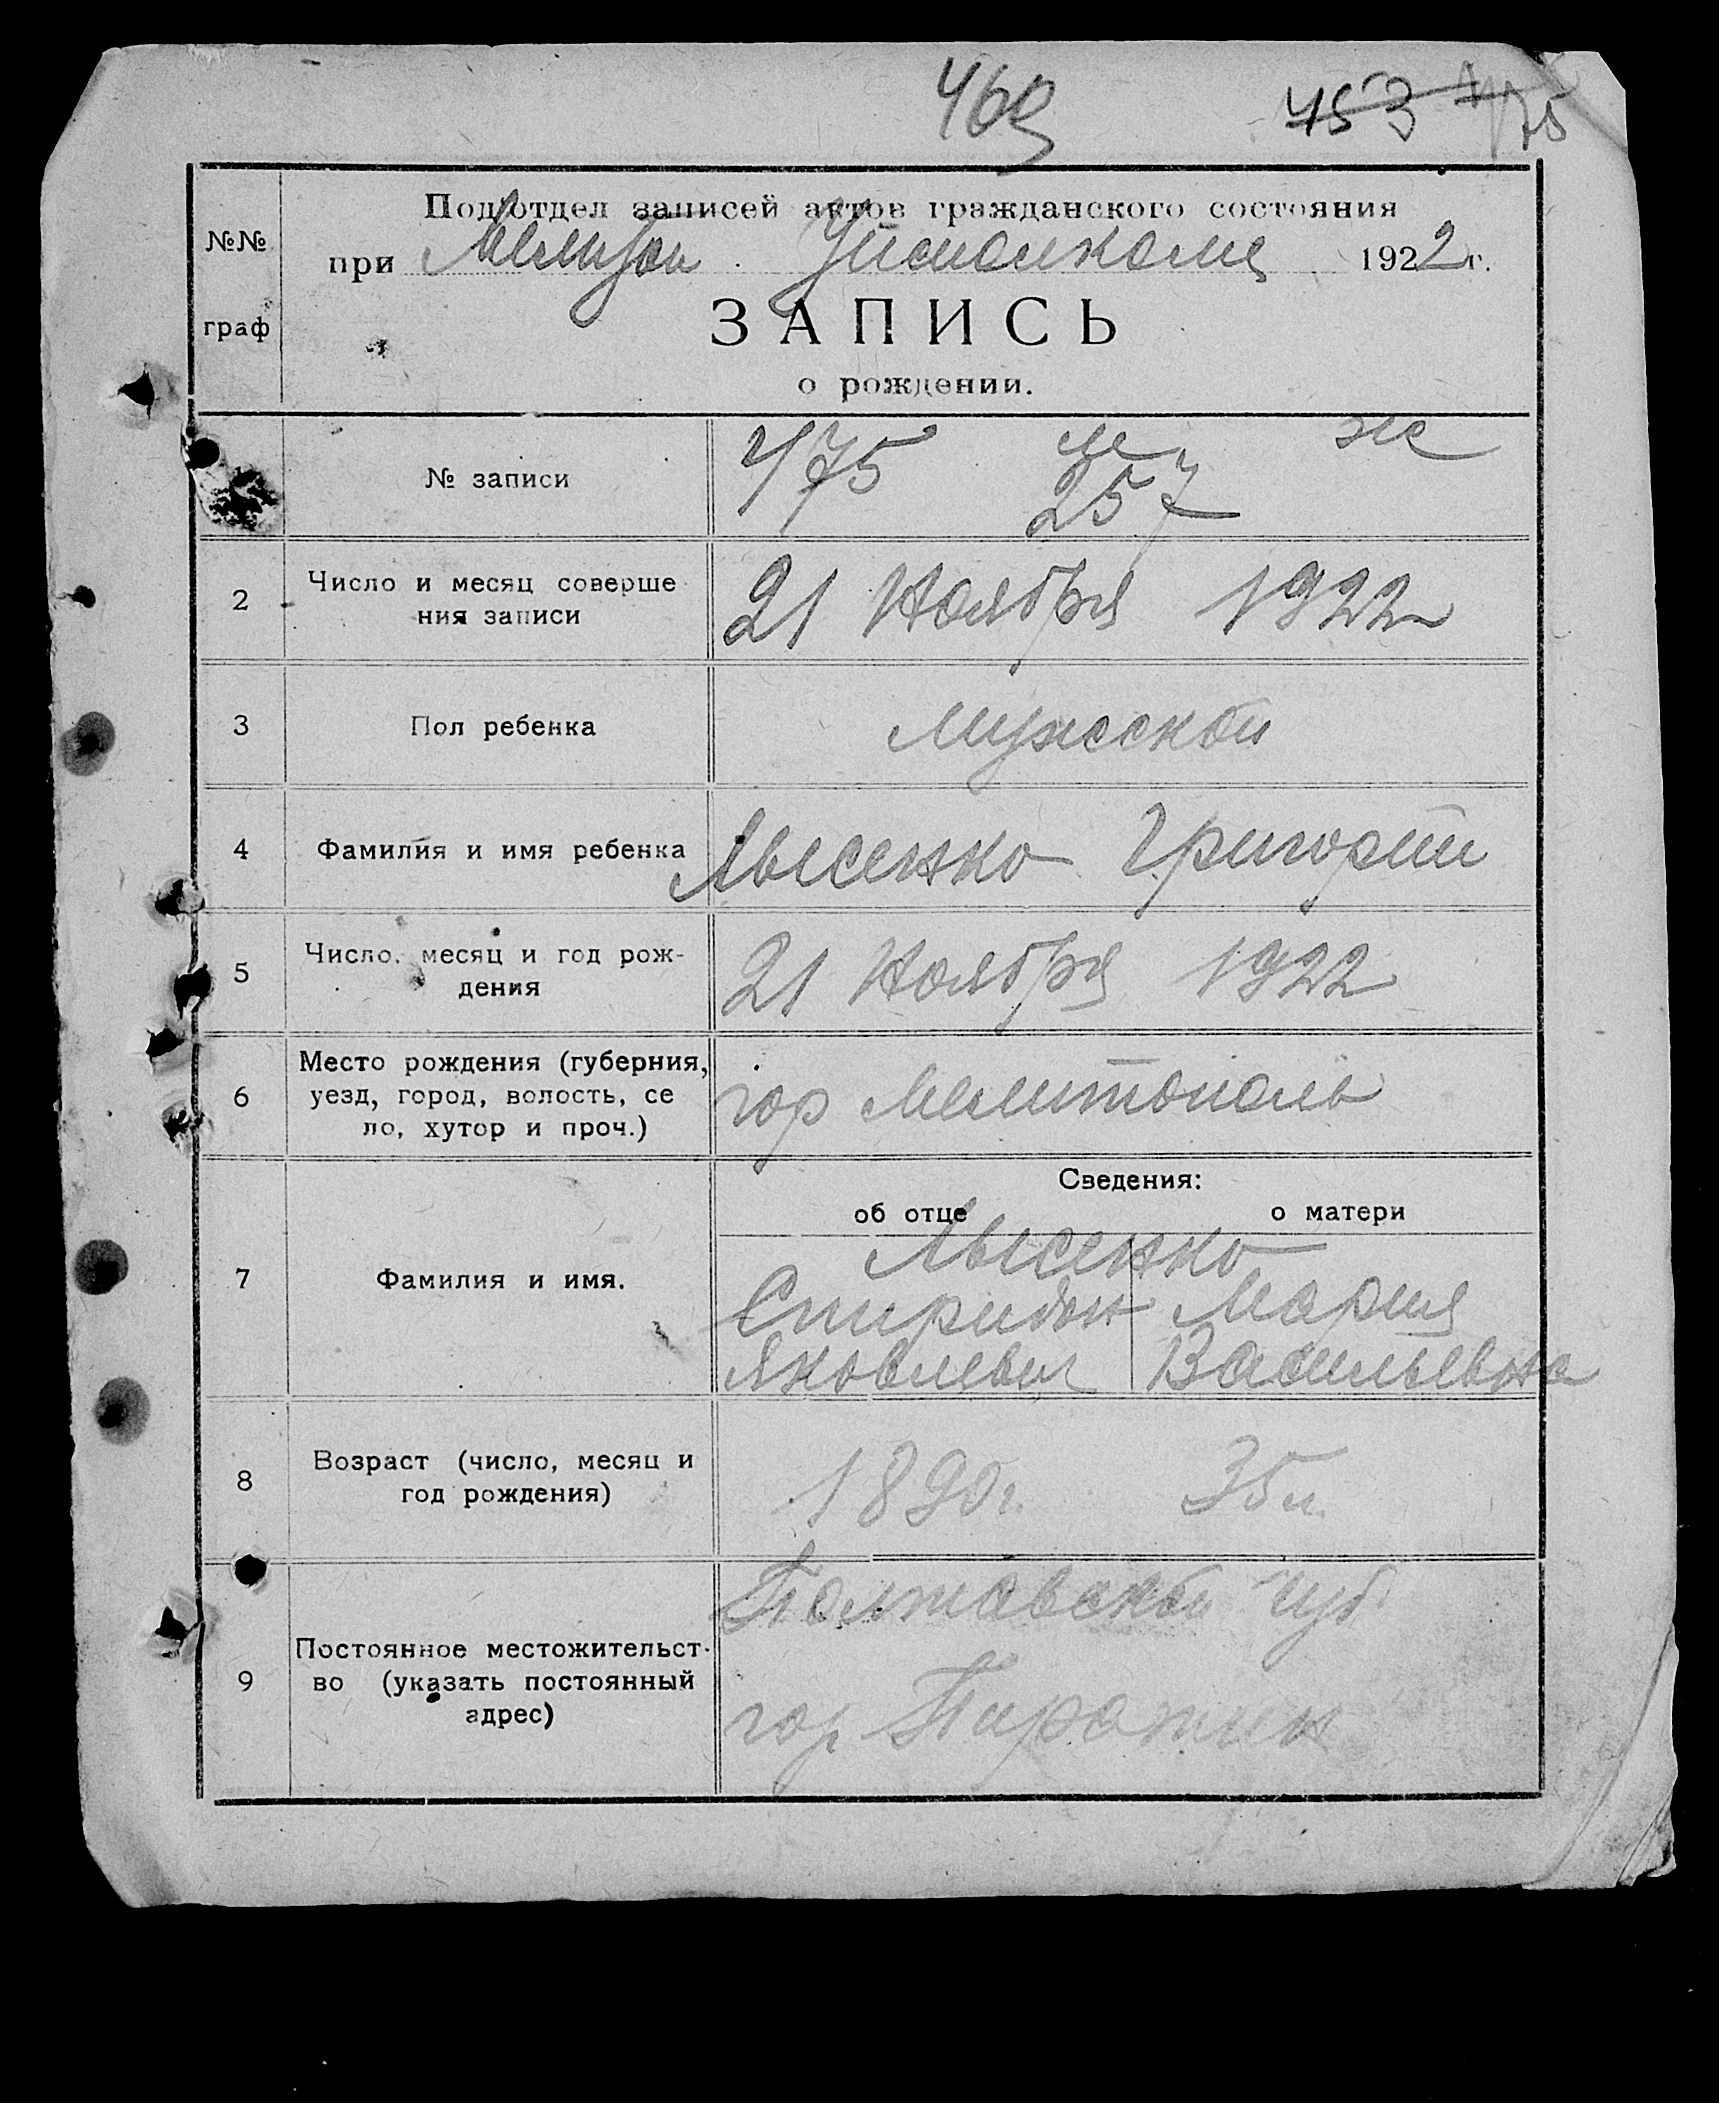 469 453 475
Подотдел записей актов гражданского состояния
при Уисполкоме 1922 г.
№№
граф
ЗАПИСЬ
о рождении.
1 № записи 475 м ж
257
2 Число и месяц соверше
ния записи 21 Ноября 1922
3 Пол ребенка Мужской
4 Фамилия и имя ребенка Лысенко Григорий
5 Число, месяц и год рож-
дения 21 Ноября 1922
6 Место рождения (губерния,
уезд, город, волость, се
ло, хутор и проч.) гор Мелитополь
Сведения:
об отце о матери
7 Фамилия и имя. Лысенко
Спиридон Мария
Яковлевич Васильевна
8 Возраст (число, месяц и
год рождения) 1890г. 35 л.
9 Постоянное местожительст-
во (указать постоянный
адрес) Полтавской губ
гор Пирятин